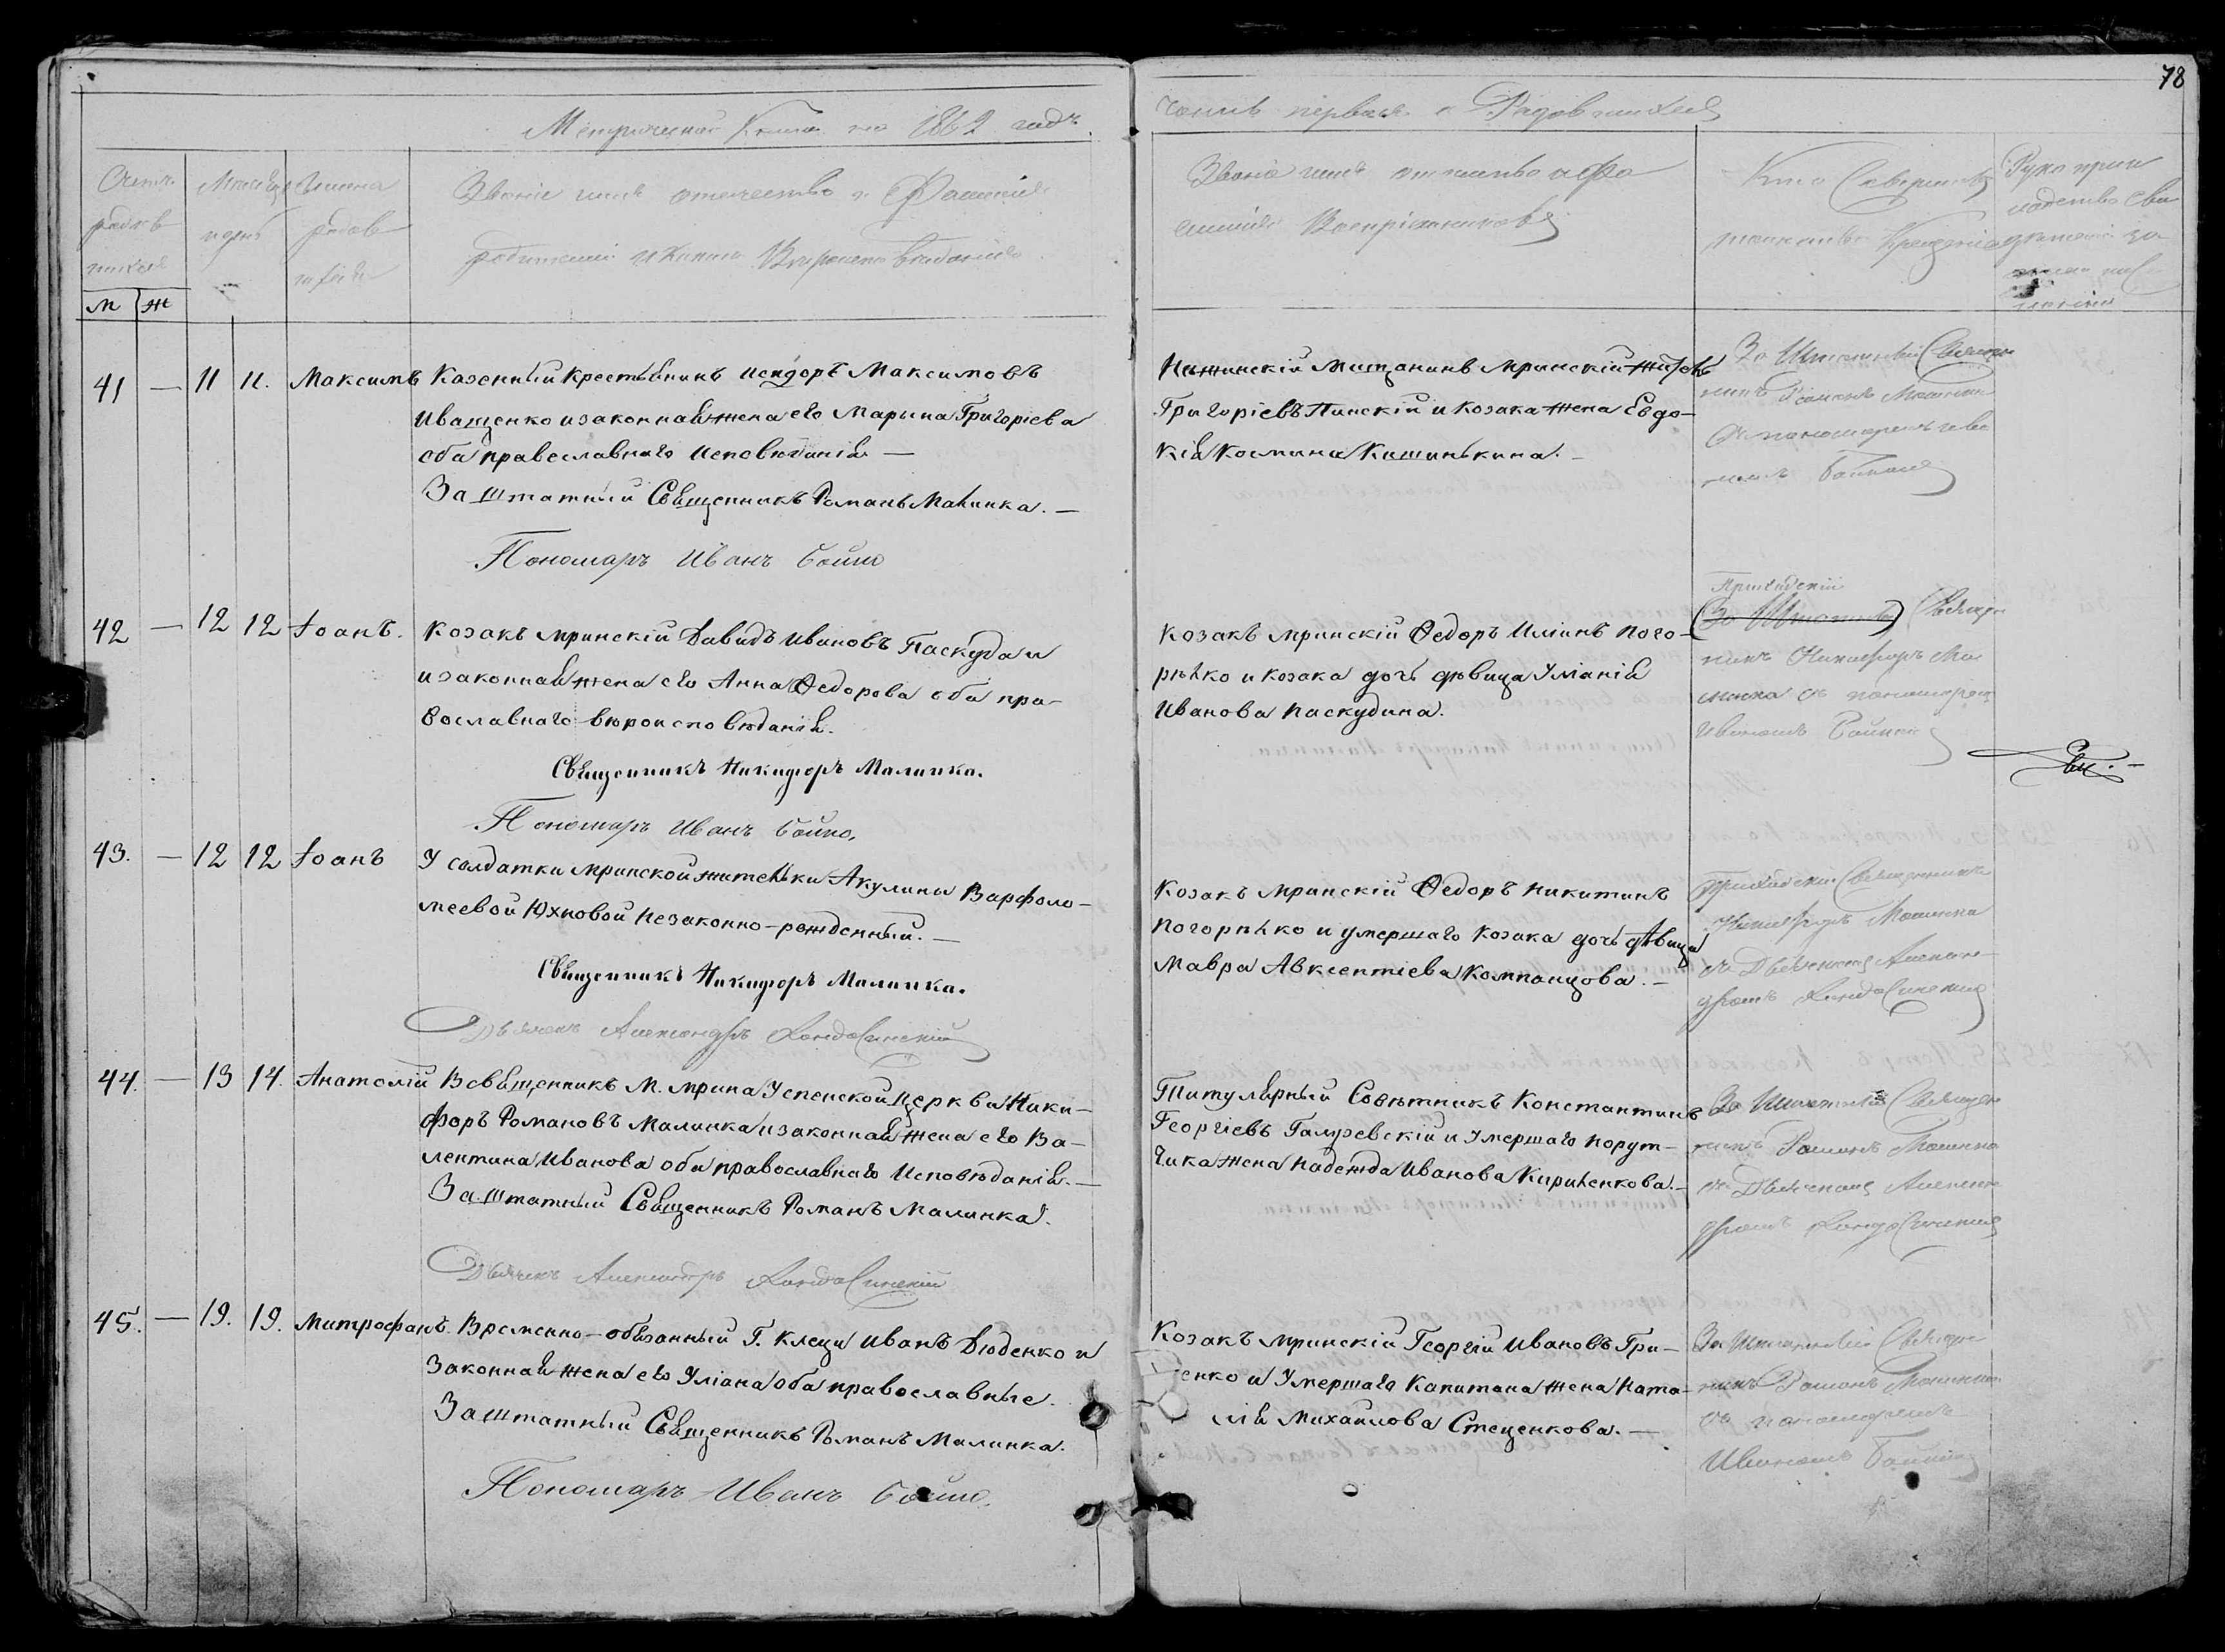 78
Метрическая Книга на 1862 годъ.
часть первая о Родившихся
Счетъ родив шихся
М Ж
Мѣсяцъ и день
Имена родив шихся
Званіе имя отечество и Фамилія
родителей и какого Вѣроисповѣданія.
Званіе имя отчество и Фа
милія Воспріемниковъ
Кто Совершалъ
таинство Крещенія
Рукопри
кладство Сви
дѣтелей за
41 — 11 11. Максимъ Казенный Крестьянинъ Исидоръ Максимовъ
Иващенко и законная жена его Марьина Григоріева
оба православнаго Исповѣданія —
Заштатный Священникъ Романъ Малинка. —
Пономарь Иванъ Бойко
Нѣжинскій Мещанинъ Мринскій Житель
Григоріевъ Пинскій и Козака жена Евдо-
кія Космина Кишинькина. —
За Штатный Священ
никъ Романъ Малинка
Съ пономаремъ Ива
номъ Бойкомъ
42 — 12 12 Іоанъ. Козакъ Мринскій Давидъ Ивановъ Паскуда и
и законная жена его Анна Ѳедорова оба пра-
вославнаго вѣроисповѣданія.
Священникъ Никифоръ Малинка.
Пономарь Иванъ Бойко.
Козакъ Мринскій Ѳедоръ Иліинъ Пого-
рѣлко и козака дочь дѣвица Уліанія
Иванова Паскудина.
Приходскій
(За Штатный) Священ
никъ Никифоръ Ма
линка съ пономаремъ
Иваномъ Бойкомъ
43. — 12 12 Іоанъ У солдатки Мринской жительки Акулины Варфоло-
меевой Юхновой Незаконно-рожденный. —
Священникъ Никифоръ Малинка.
Дьячекъ Александръ
Козакъ Мринскій Ѳедоръ Никитинъ
Погорѣлко и умершаго Козака дочь дѣвица
Мавра Авксентіева Компанцова. —
Приходскій Священникъ
Никифоръ Малинка
съ Дьячкомъ Алексан-
дромъ
44. — 13 14. Анатолій В Священникъ М. Мрина Успенской Церкви Ники-
форъ Романовъ Малинка и законная жена его Ва-
лентина Иванова оба православнаго Исповѣданія. —
Заштатный Священникъ Романъ Малинка.
Дьячекъ Александръ
Титулярный Совѣтникъ Константинъ
Георгіевъ Галузевскій и Умершаго Порут-
чика жена Надежда Иванова Кириленкова. —
За Штатный Священ
никъ Романъ Малинка
съ Дьячкомъ Алексан
дромъ
45. — 19. 19. Митрофанъ. Временно-обязанный Г. Клеци Иванъ Дюденко и
Законная жена его Уліана оба православные.
Заштатный Священникъ Романъ Малинка.
Пономарь Иванъ Бойко.
Козакъ Мринскій Георгій Ивановъ Гри-
енко и Умершаго Капитана жена Ната-
лія Михайлова Стеценкова. —
За Штатный Священ
никъ Романъ Малинка
съ пономаремъ
Иваномъ Бойкомъ